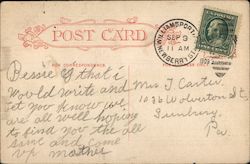 POST CARD
FOR CORRESPONDENCE
WILLIAMSPORT
SEP 9
11 AM
1909
Bessie that i
Would write and
let you know we
are all well hoping
to find you the all
same and come
up mother
Mrs J. Carter
1036 Wolverton st
Sunbury
Pa